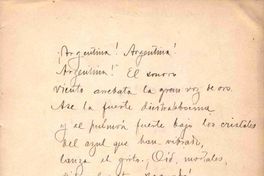 ¡Argentina! ¡Argentina!
¡Argentina! El sonoro
viento arrebata la gran voz de oro.
Ase la fuerte diestra la bocina
y el pulmón fuerte bajo los cristales
del azul que han vibrado,
lanza el grito: ¡Oíd, mortales,